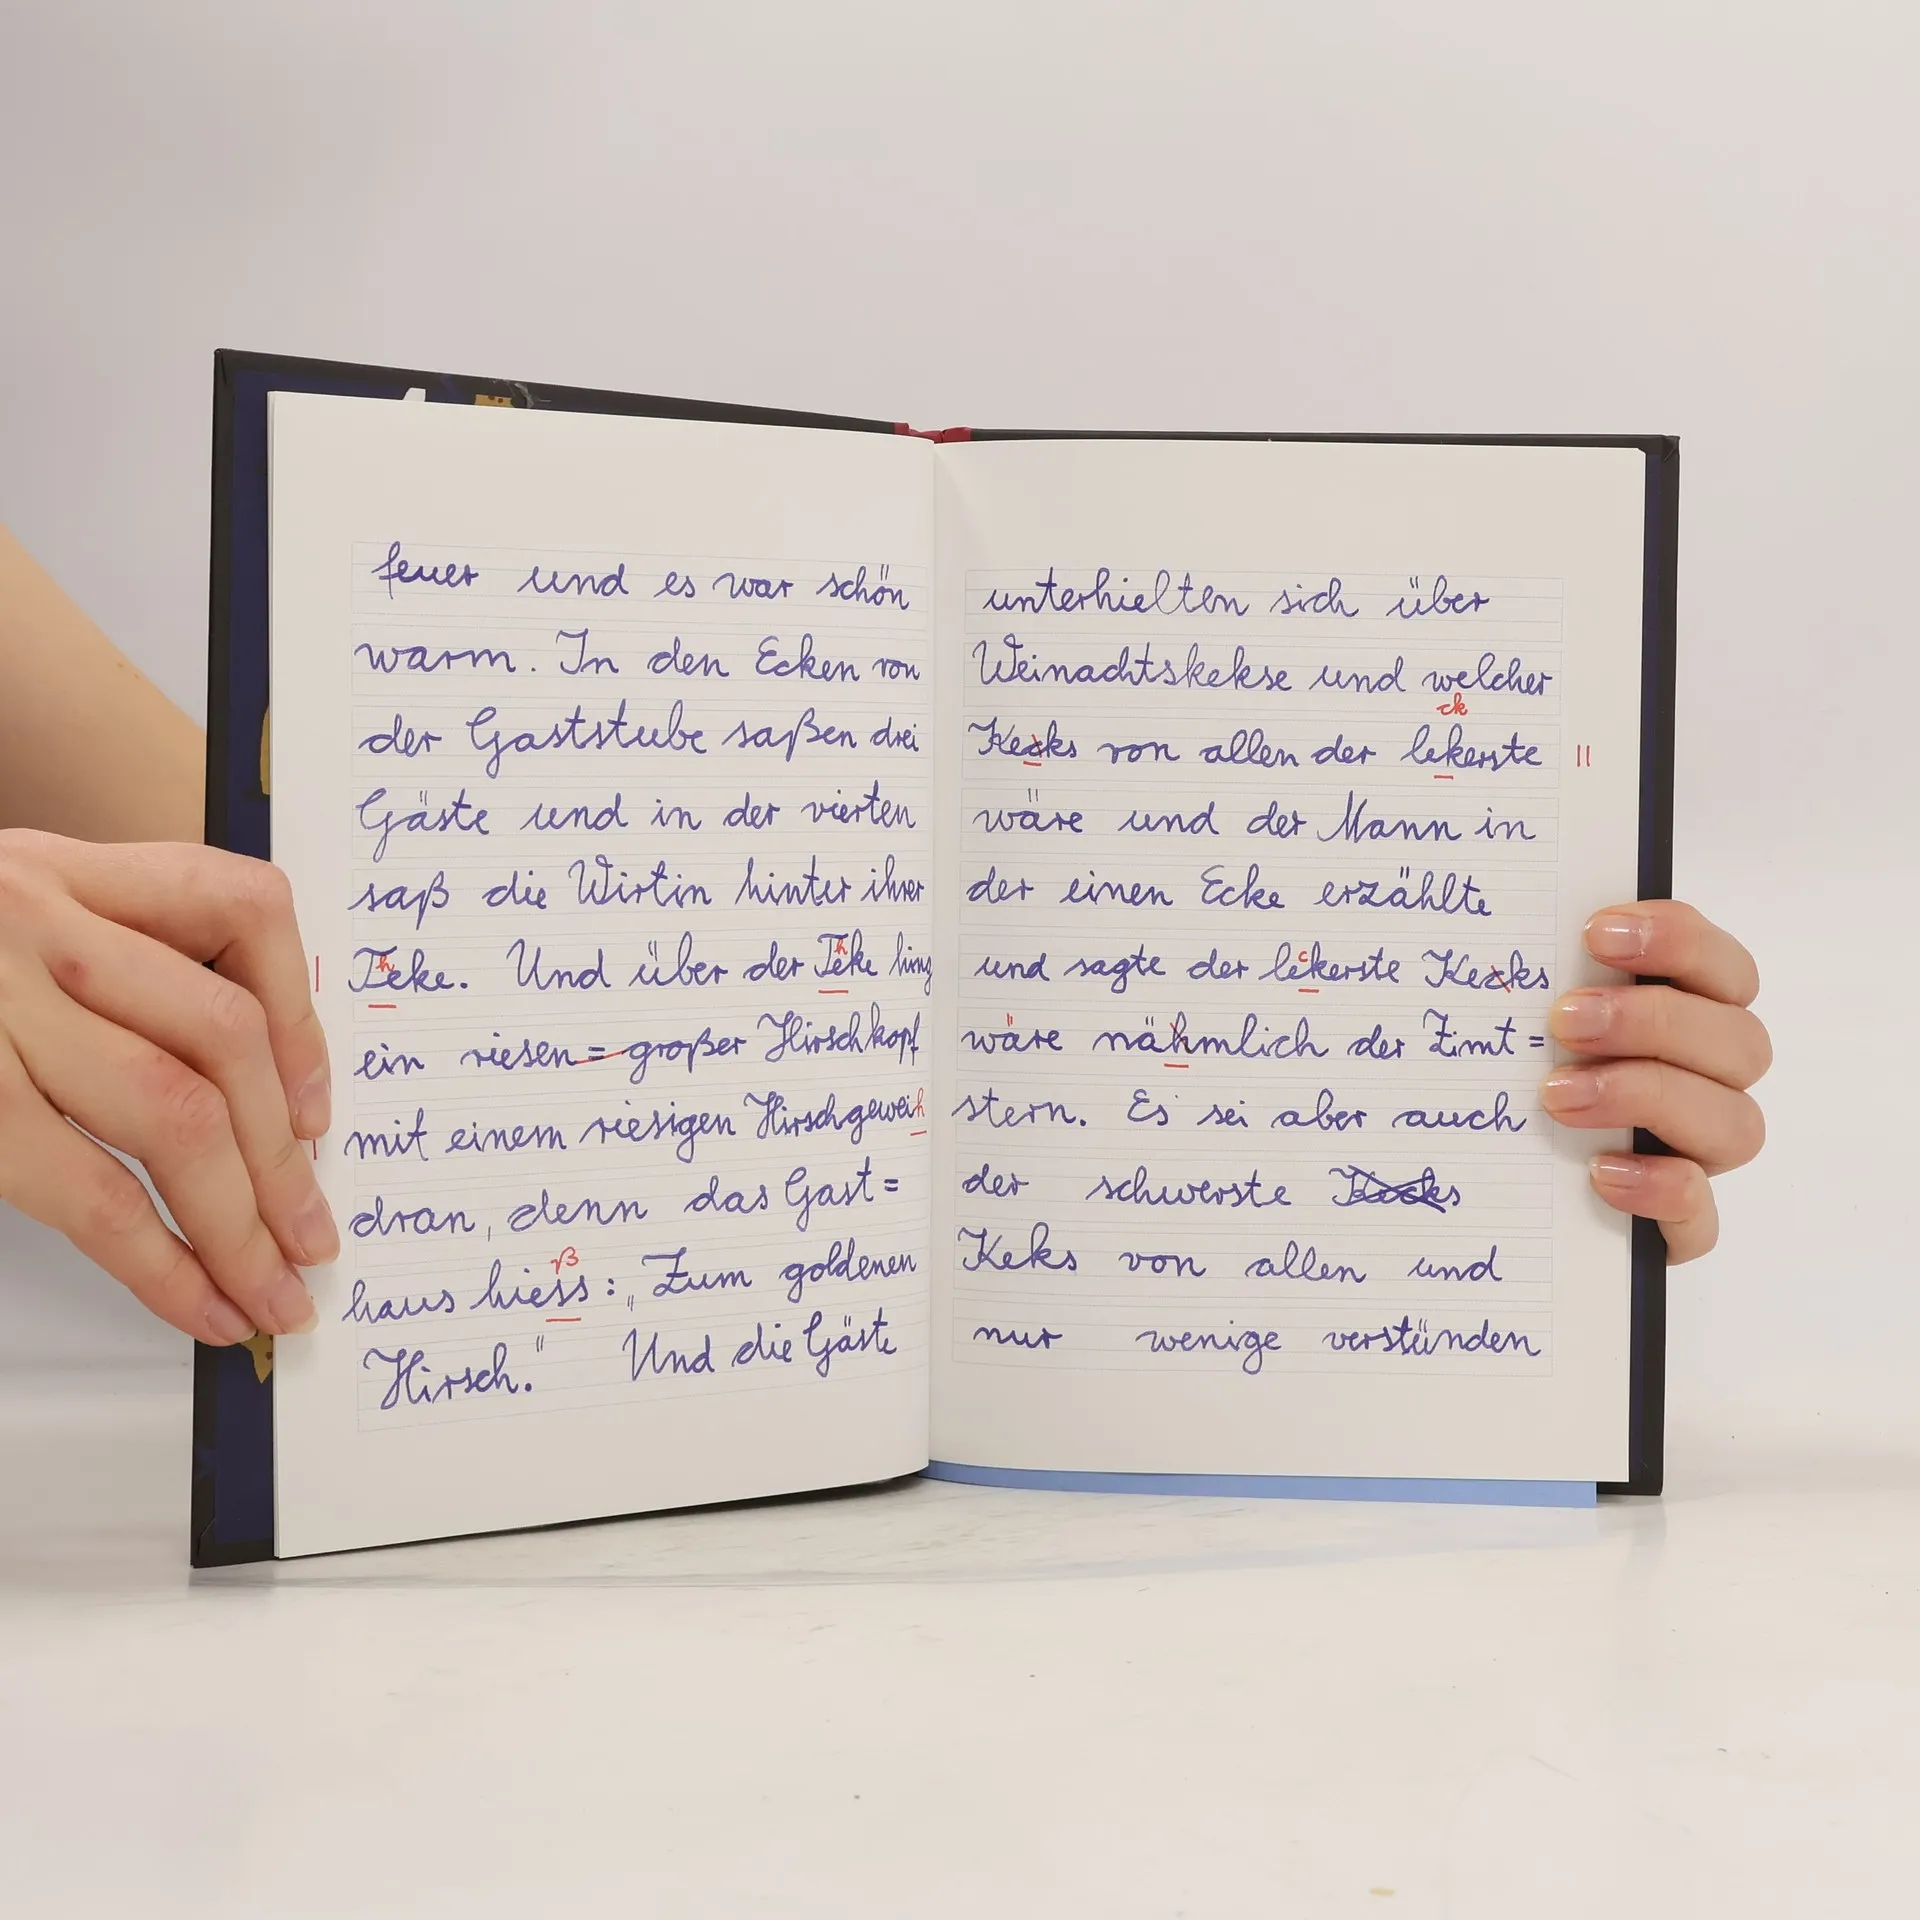 feuer und es war schön
warm. In den Ecken von
der Gaststube saßen drei
Gäste und in der vierten
saß die Wirtin hinter ihrer
Theke. Und über der Theke hing
ein riesen=großer Hirschkopf
mit einem riesigen Hirschgeweih
dran, denn das Gast=
ß
haus hiess: „Zum goldenen
Hirsch." Und die Gäste
unterhielten sich über
Weinachtskekse und welcher
ck
Kecks von allen der lekerste
wäre und der Mann in
der einen Ecke erzählte
und sagte der leckerste Kecks
wäre nähmlich der Zimt=
stern. Es sei aber auch
der schwerste Kecks
Keks von allen und
nur wenige verstünden